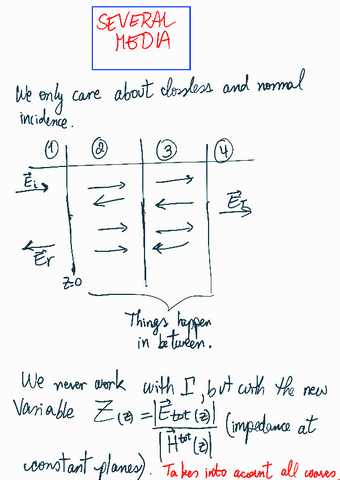 SEVERAL
MEDIA
We only care about lossless and normal
incidence.
① ② ③ ④
E⃗i E⃗t
E⃗r
z=0
Things happen
in between.
We never work with Γ, but with the new
Variable Z(z) = |E⃗tot(z)| / |H⃗tot(z)| (impedance at
constant planes). Takes into acount all waves